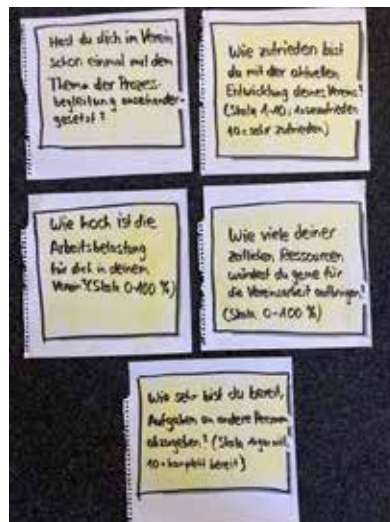 Hast du dich im Verein
schon einmal mit dem
Thema der Prozess-
begleitung auseinander-
gesetzt?
Wie zufrieden bist
du mit der aktuellen
Entwicklung deines Vereins?
(Skala 1-10, 1=unzufrieden
10=sehr zufrieden)
Wie hoch ist die
Arbeitsbelastung
für dich in deinem
Verein? (Skala 0-100 %)
Wie viele deiner
zeitlichen Ressourcen
würdest du gerne für
die Vereinsarbeit aufbringen?
(Skala 0-100 %)
Wie sehr bist du bereit,
Aufgaben an andere Personen
abzugeben? (Skala 1=gar nicht,
10=komplett bereit)